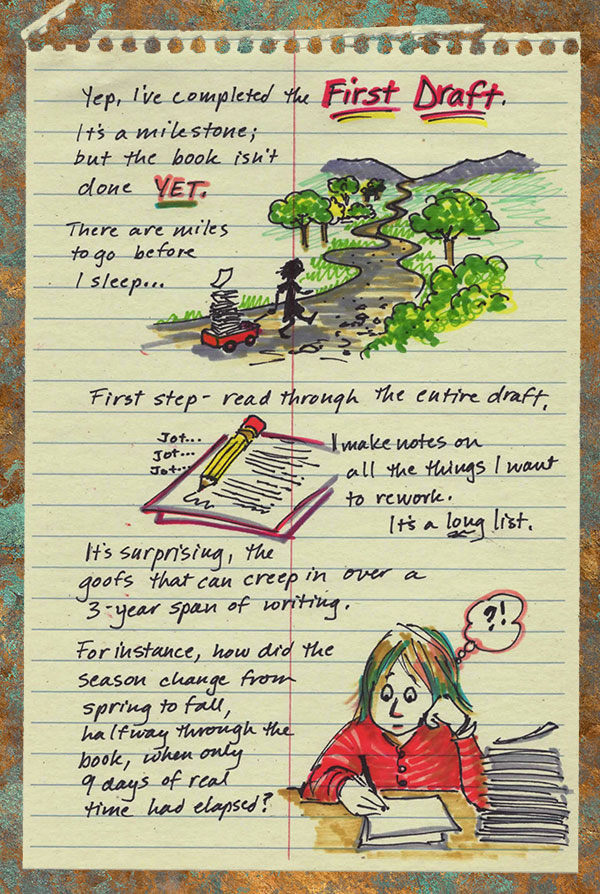 Yep, I've completed the First Draft.
It's a milestone;
but the book isn't
done YET.
There are miles
to go before
I sleep...
First step - read through the entire draft.
Jot...
Jot...
Jot...
I make notes on
all the things I want
to rework.
It's a long list.
It's surprising, the
goofs that can creep in over a
3-year span of writing.
?!
For instance, how did the
season change from
spring to fall,
halfway through the
book, when only
9 days of real
time had elapsed?